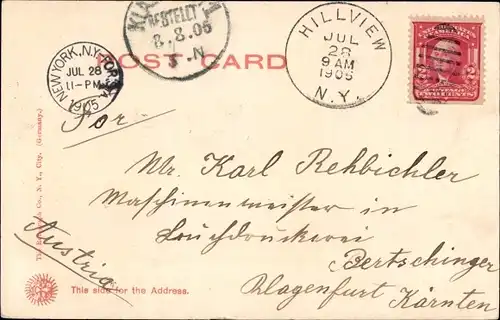 HILLVIEW
JUL
28
9 AM
1905
N.Y.
BESTELLT
8.8.05
N
NEW YORK, N.Y.
JUL 28
11-PM
1905
POST CARD
2
TWO CENTS
For
Mr. Karl Rehbichler
Maschinenmeister in
Buchdruckerei
Bertschinger
Klagenfurt Kärnten
Austria
Co., N. Y. City. (Germany.)
This side for the Address.